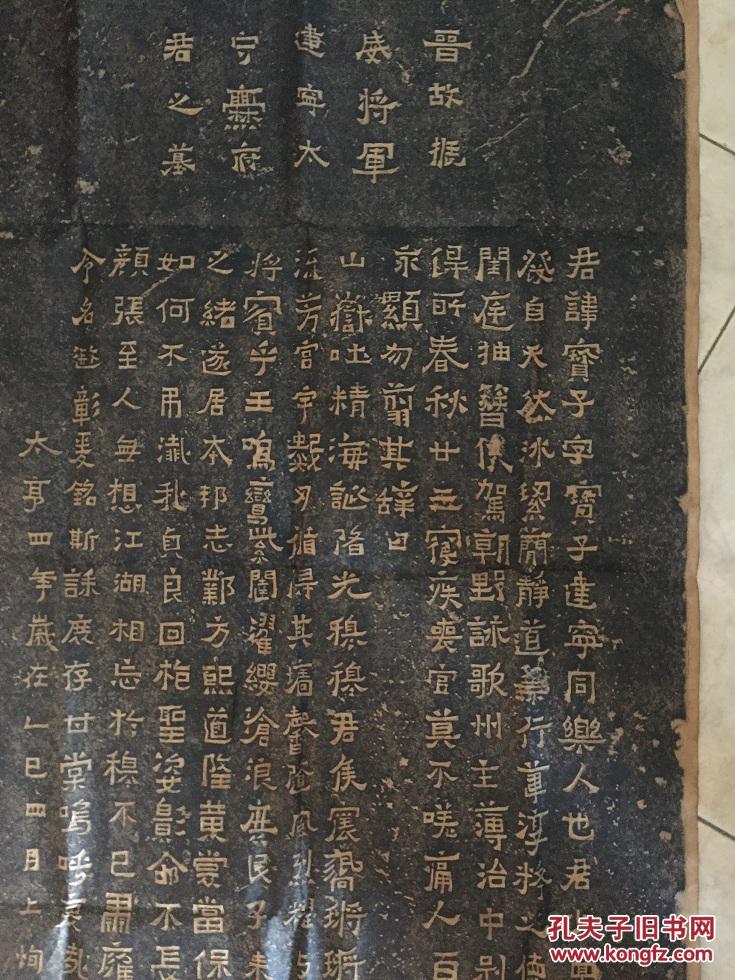 晉故振
威將軍
建寧太
守爨府
君之墓
君諱寶子字寶子建寧同樂人也君少稟
發自天然冰絜蕑靜道兼行葦淳粹之德
閨庭抽簪俟駕朝野詠歌州主簿治中別
得所春秋廿三寑疾喪官莫不嗟痛人百
永顯勿翦其辭曰
山嶽吐精海誕陼光穆穆君侯震嚮鏘鏘
流芳宮宇數仞循得其墻馨隨風烈耀与
將賓乎王鳴鸞紫闥濯纓滄浪庶民子來
之緒遂居本邦志鄴方熙道隆黃裳當保
如何不弔殲我貞良回枹聖姿影命不長
顏張至人無想江湖相忘於穆不已肅雍
令名遐彰爰銘斯誄庶存甘棠嗚呼哀哉
太亨四年歲在乙巳四月上恂
孔夫子旧书网
www.kongfz.com